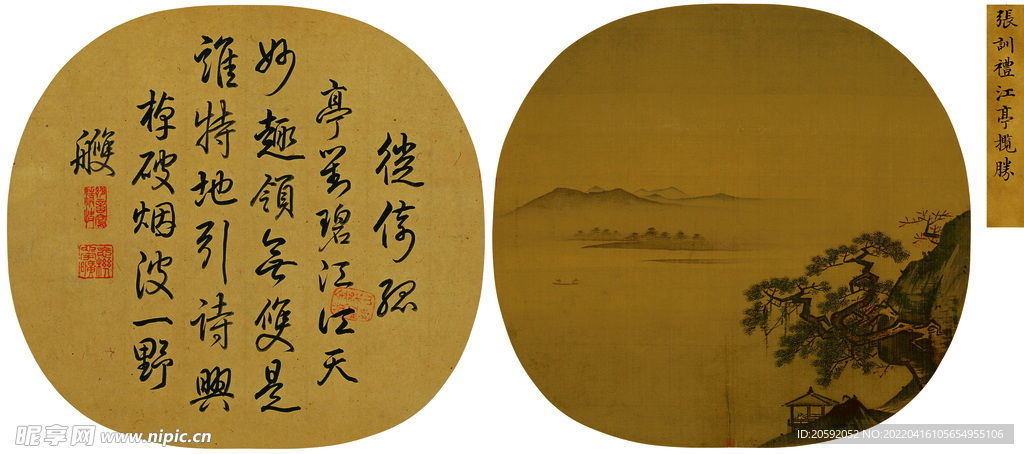 徙倚孤
亭對碧江江天
妙趣領無雙是
誰特地引詩興
棹破烟波一野
艭
張訓禮江亭攬勝
昵享网 www.nipic.cn
ID:20592052 NO:20220416105654955106